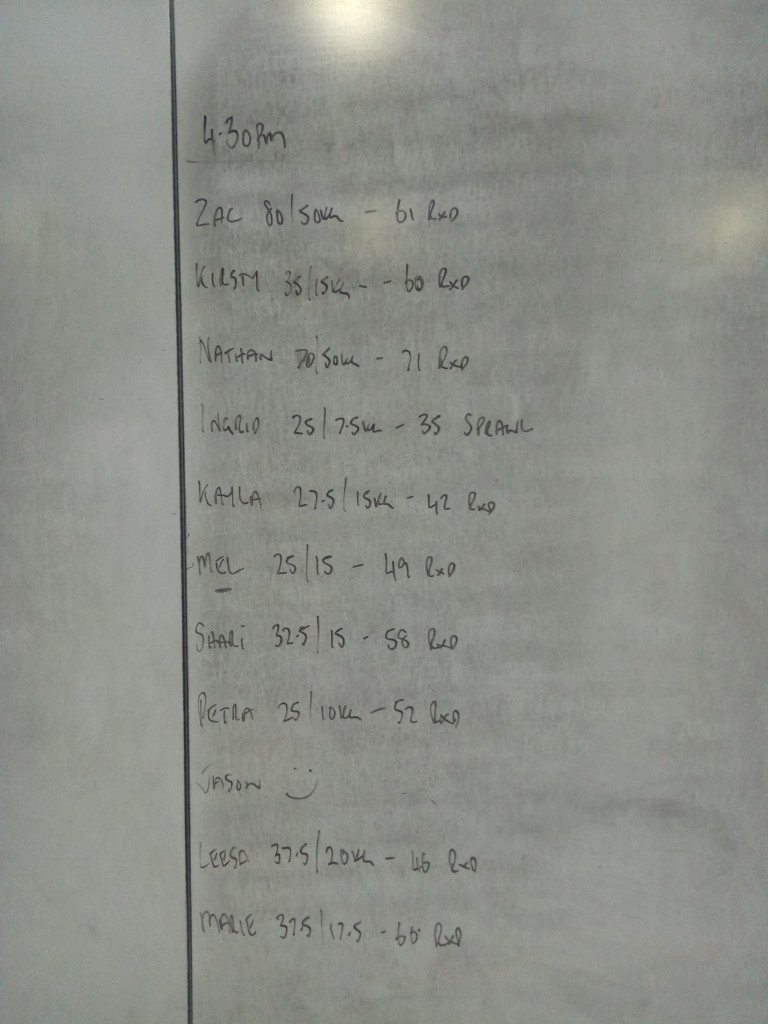 4.30Pm
ZAC 80/50KG - 61 RXD
KIRSTY 35/15KG - - 60 RXD
NATHAN 70/50KG - 71 RXD
INGRID 25/7.5KG - 35 SPRAWL
KAYLA 27.5/15KG - 42 RXD
MEL 25/15 - 49 RXD
SHARI 32.5/15 - 58 RXD
PETRA 25/10KG - 52 RXD
JASON :)
LEESA 37.5/20KG - 46 RXD
MARIE 37.5/17.5 - 60 RXD